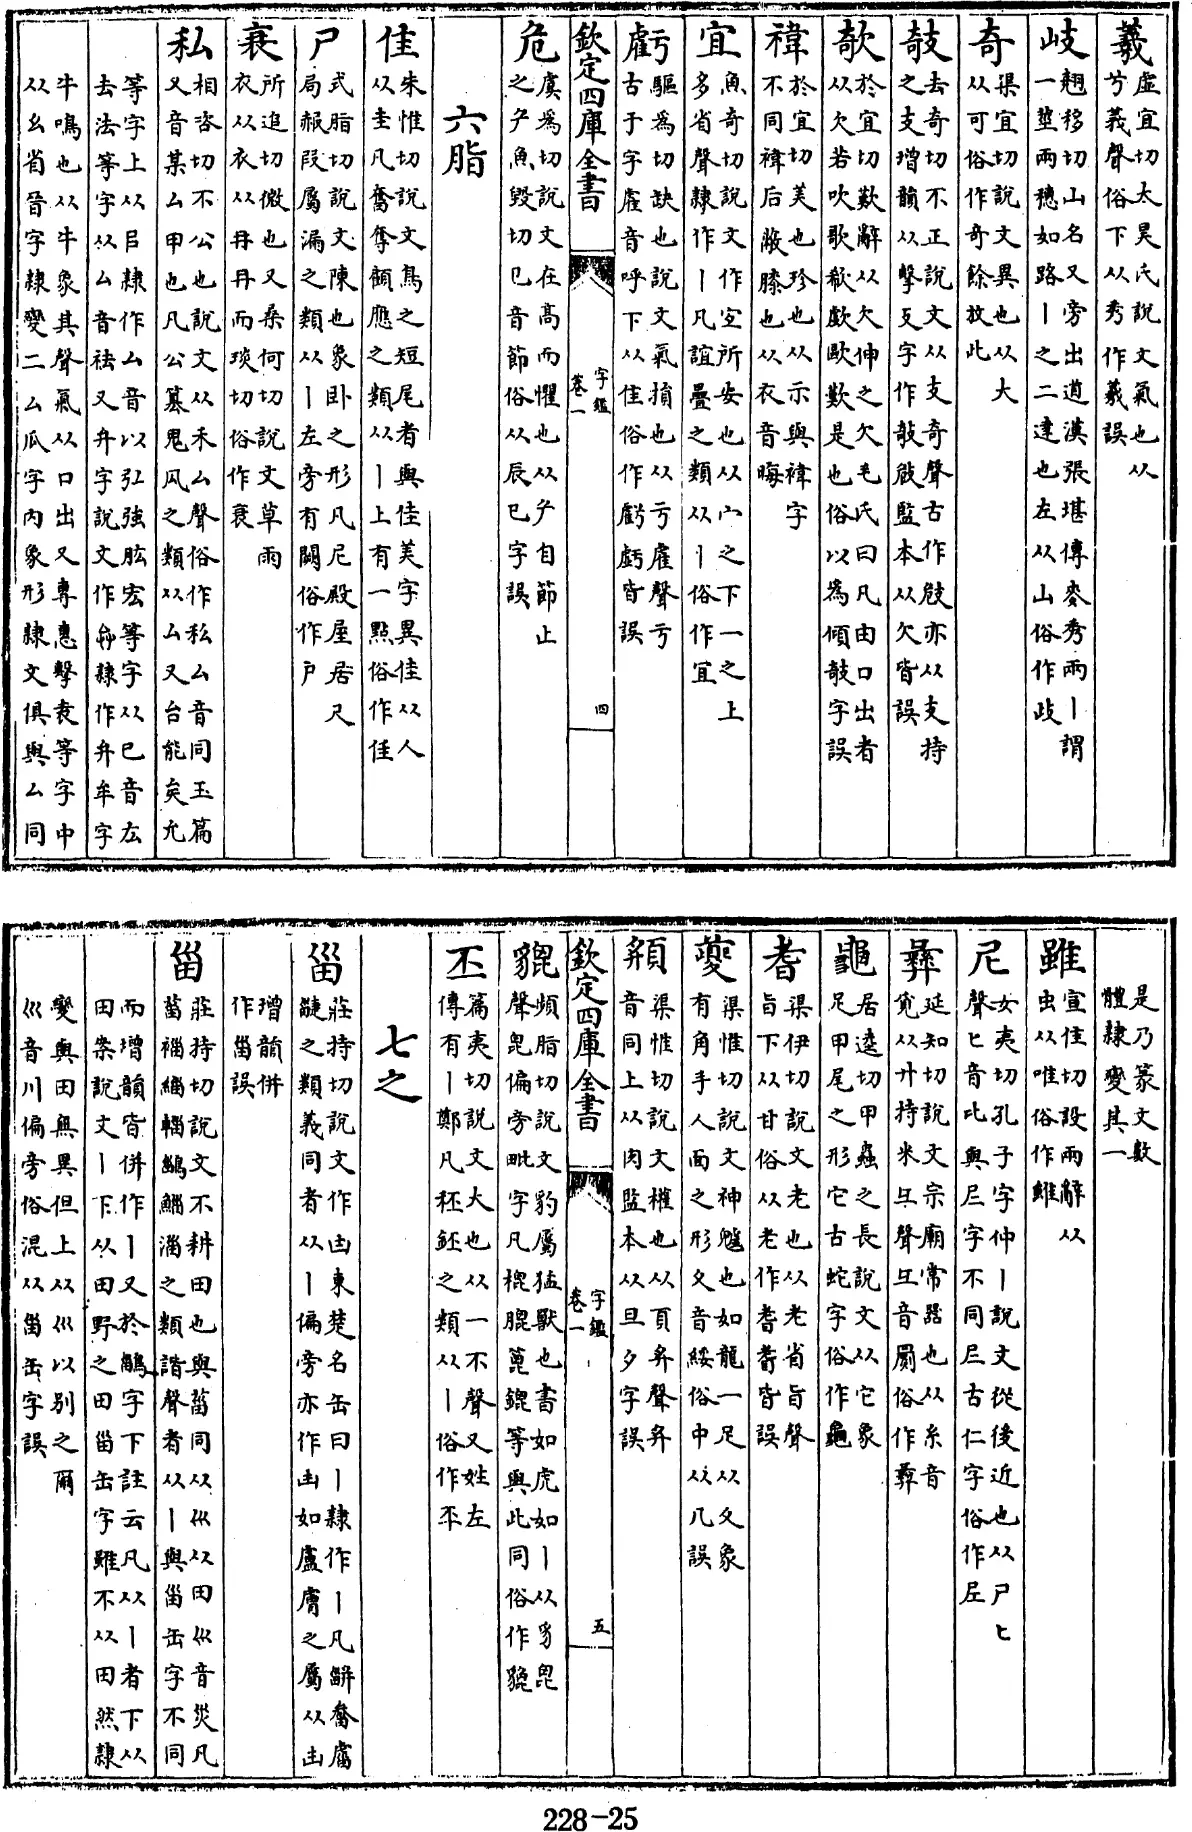 羲虛宜切太昊氏説文氣也从
兮義聲俗下从秀作羲誤
岐翹移切山名又旁出道漢張堪傳麥秀兩丨謂
一莖兩穗如路丨之二達也左从山俗作歧
奇渠宜切説文異也从大
从可俗作竒餘放此
攲去奇切不正説文从支奇聲古作攱亦从支持
之支增韻从擊攴字作敧㪉監本从欠皆誤
欹於宜切歎辭从欠伸之欠毛氏曰凡由口出者
从欠若吹歌欷歔歐歎是也俗以為傾攲字誤
禕於宜切美也珍也从示與褘字
不同褘后蔽膝也从衣音暉
宜魚奇切説文作宐所安也从宀之下一之上
多省聲隷作丨凡誼疊之類从丨俗作冝
虧驅為切缺也説文氣損也从亏雐聲亏
古于字雐音呼下从隹俗作虧皆誤
欽定四庫全書
字鑑
卷一
四
危虞為切説文在高而懼也从厃自節止
之厃魚毀切㔾音節俗从辰巳字誤
六脂
隹朱惟切説文鳥之短尾者與佳美字異佳从人
从圭凡奮奪顀應之類从丨上有一點俗作隹
尸式脂切説文陳也象卧之形凡尼殿屋居尺
局赧叚屬漏之類从丨左旁有闕俗作戸
衰所追切微也又桑何切説文草雨
衣从衣从冄冄而琰切俗作衰
私相咨切不公也説文从禾厶聲俗作私厶音同玉篇
又音某厶甲也凡公簒鬼風之類从厶又台能矣允
等字上从㠯隷作厶音以弘強肱宏等字从巳音厷
去法等字从厶音祛又弁字説文作隷作弁牟字
牛鳴也从牛象其聲氣从口出又專惠擊袁等字中
从幺省晉字隷變二厶瓜字内象形隷文俱與厶同
是乃篆文數
體隷變其一
雖宣佳切設兩辭从
虫从唯俗作雖
尼女夷切孔子字仲丨説文從後近也从尸匕
聲匕音比與𡰥字不同𡰥古仁字俗作𡰱
彝延知切説文宗廟常器也从糸音
覓从廾持米彑聲彑音罽俗作彛
龜居逵切甲蟲之長説文从它象
足甲尾之形它古蛇字俗作龜
耆渠伊切説文老也从老省旨聲
旨下从甘俗从老作耆皆誤
夔渠惟切説文神魖也如龍一足从夊象
有角手人面之形夊音綏俗中从几誤
頯渠惟切説文權也从頁𠔻聲𠔻
音同上从肉監本从旦夕字誤
欽定四庫全書
字鑑
卷一
五
貔頻脂切説文豹屬猛獸也書如虎如丨从豸毘
聲毘偏旁毗字凡榥膍蓖鎞等與此同俗作貔
丕篇夷切説文大也从一不聲又姓左
傳有丨鄭凡秠鉟之類从丨俗作㔻
七之
甾莊持切説文作甴東楚名缶曰丨隷作丨凡缾畚盧
疀之類義同者从丨偏旁亦作甶如盧膚之屬从甴
增韻併
作甾誤
甾莊持切説文不耕田也與葘同从巛从田巛音災凡
菑椔緇輜鶅鯔淄之類諧聲者从丨與甾缶字不同
而增韻皆併作丨又於鶅字下註云凡从丨者下从
田案説文丨下从田野之田甾缶字雖不从田然隷
變與田無異但上从巛以别之爾
巛音川偏旁俗混从甾缶字誤
228-25